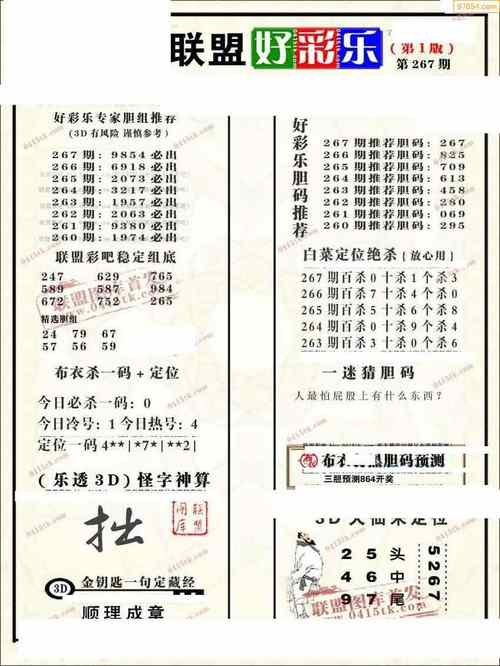 97654.com
联盟 好彩乐 (第1版)
第267期
好彩乐专家胆组推荐
(3D有风险 谨慎参考)
267期:9854必出
266期:6918必出
265期:2073必出
264期:3217必出
263期:1957必出
262期:2063必出
261期:9380必出
260期:1974必出
联盟彩吧稳定组底
247 629 765
589 987 457
672 752 265
精选胆组
24 79 67
57 56 59
布衣杀一码+定位
今日必杀一码:0
今日冷号:1今日热号:4
定位一码4**|*7*|**2|
(乐透3D)怪字神算
拙
联盟图库
3D 金钥匙一句定藏经
顺理成章
好彩乐胆码推荐
267期推荐胆码:267
266期推荐胆码:825
265期推荐胆码:709
264期推荐胆码:613
263期推荐胆码:458
262期推荐胆码:280
261期推荐胆码:069
260期推荐胆码:295
白菜定位绝杀{放心用}
267期百杀0十杀1个杀3
266期百杀7十杀4个杀0
265期百杀5十杀6个杀8
264期百杀0十杀9个杀4
263期百杀3十杀0个杀6
一迷猜胆码
人最怕屁股上有什么东西?
布衣 胆码预测
三胆预测864开奖
定位
2 5 头
4 6 中
9 7 尾
5267
联盟图库首发
0415tk.com